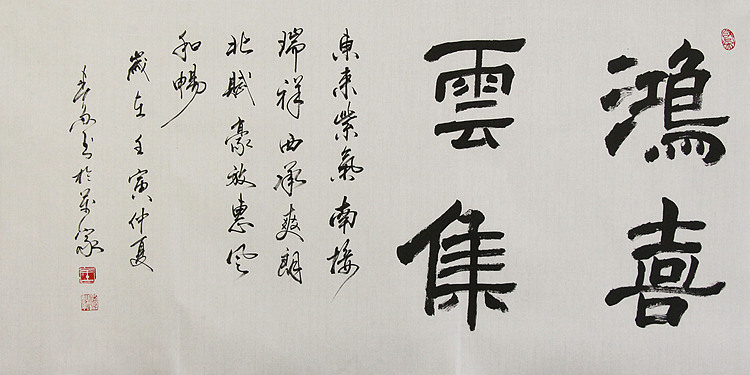 鴻喜
雲集
東來紫氣南接
瑞祥西承爽朗
北賦豪放惠風
和暢
歲在壬寅仲夏
於